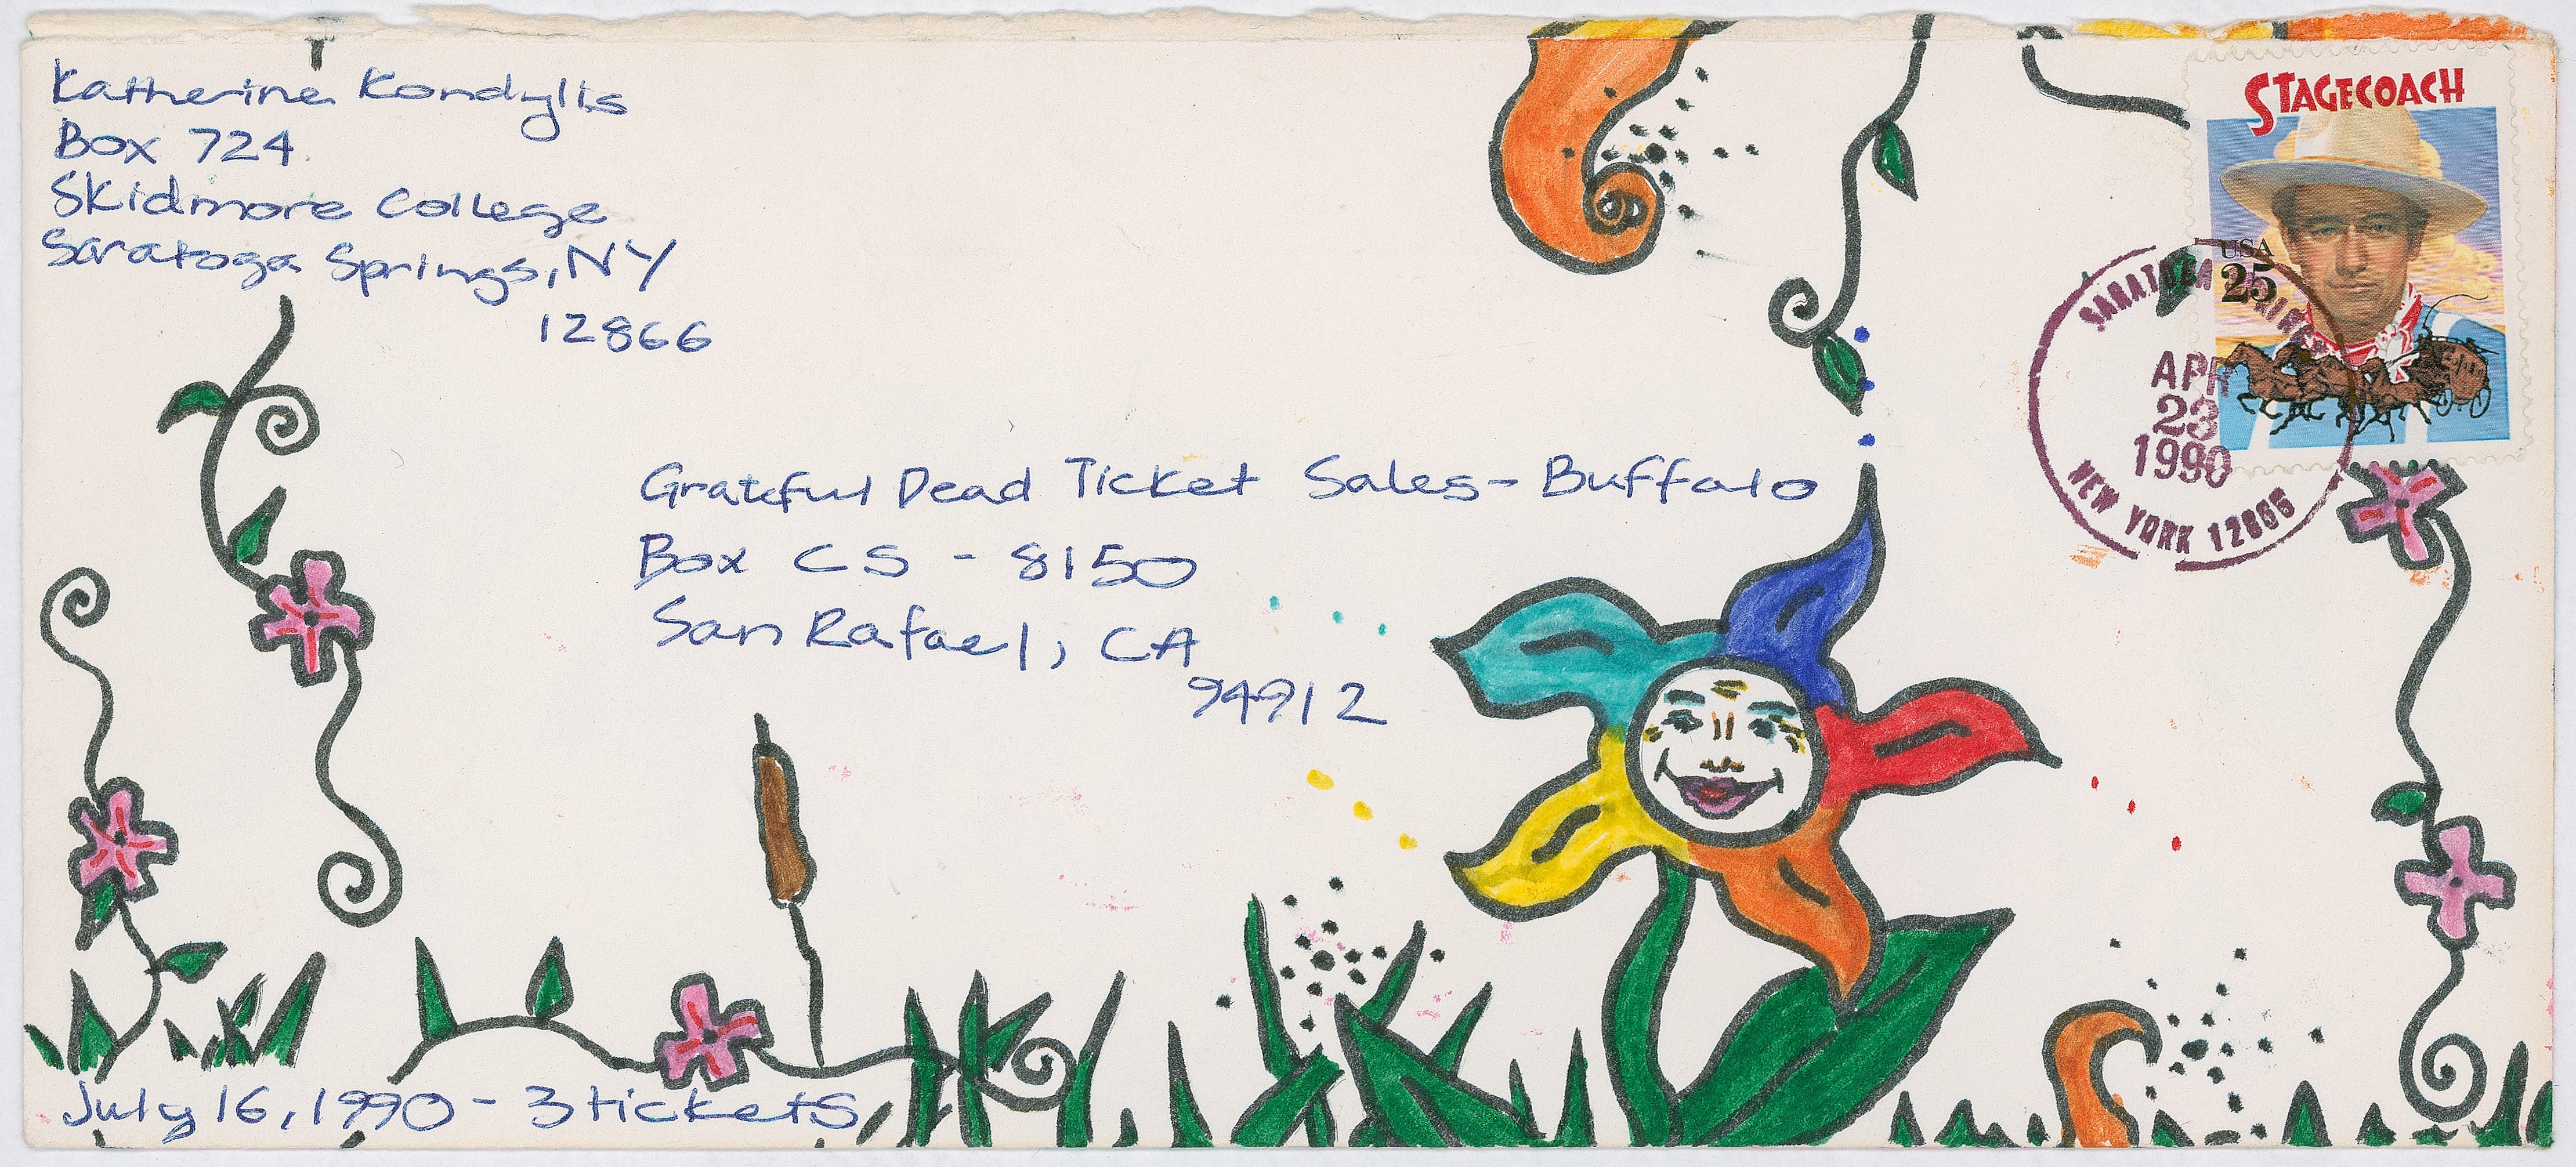 Katherine Kondylis
Box 724
Skidmore College
Saratoga Springs, NY
12866
STAGECOACH
USA
25
SARATOGA SPRINGS
APR
23
1990
NEW YORK 12866
Grateful Dead Ticket Sales - Buffalo
Box CS - 8150
San Rafael, CA
94912
July 16, 1990 - 3 tickets